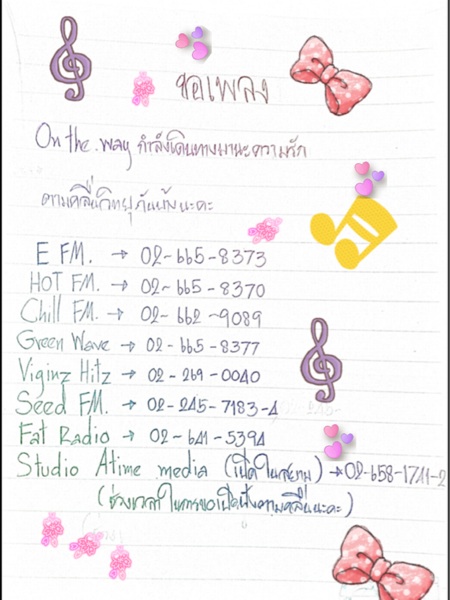 ขอเพลง
On the way กำลังเดินทางมานะความรัก
ตามคลื่นวิทยุกันบ้างนะคะ
E FM. → 02-665-8373
HOT FM. → 02-665-8370
Chill FM. → 02-662-9089
Green Wave → 02-665-8377
Viginz Hitz → 02-269-0040
Seed FM. → 02-245-7183-4
Fat Radio → 02-641-5394
Studio Atime media (เปิดในสยาม) → 02-658-1741-2
(ช่วงเวลาในการขอเปิดฟังตามคลื่นนะคะ)